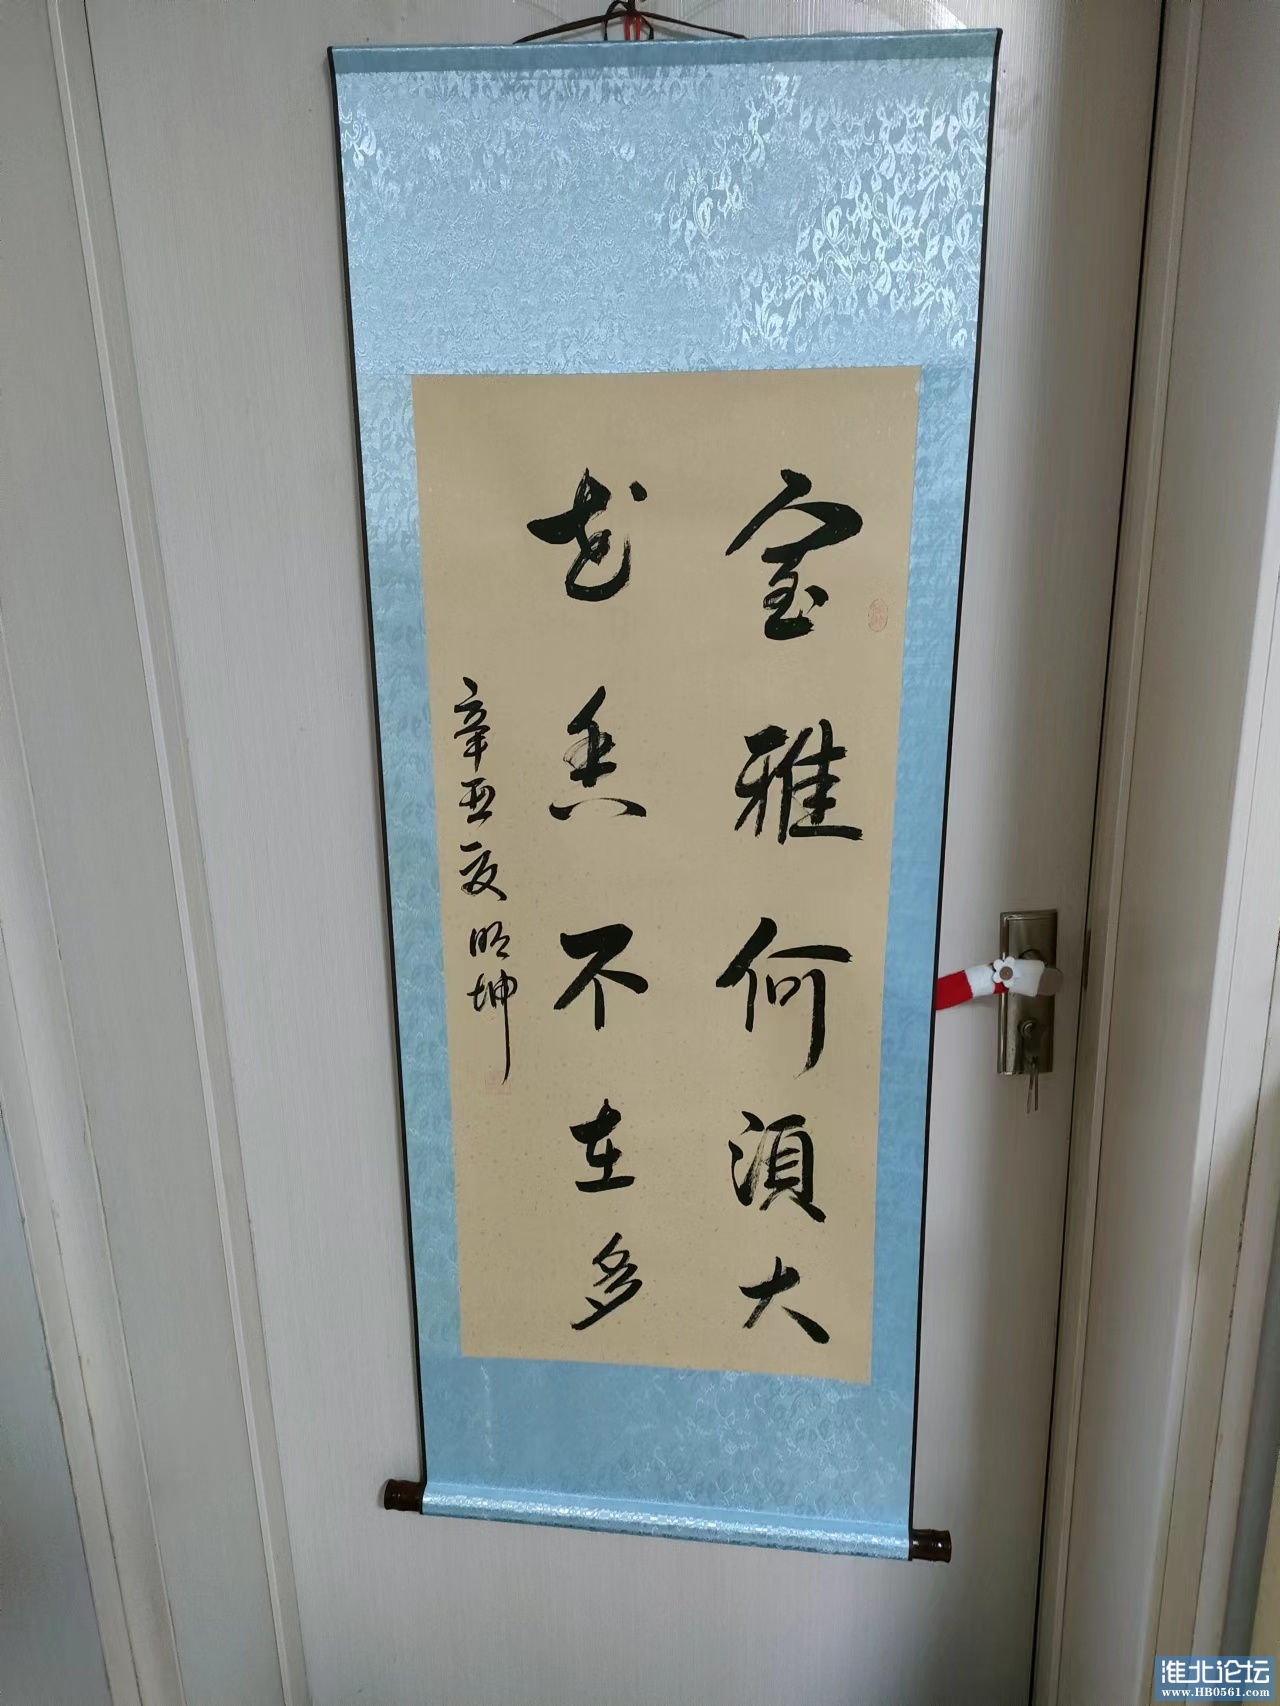 室雅何須大
花香不在多
辛丑夏明坤
淮北论坛
www.HB0561.com